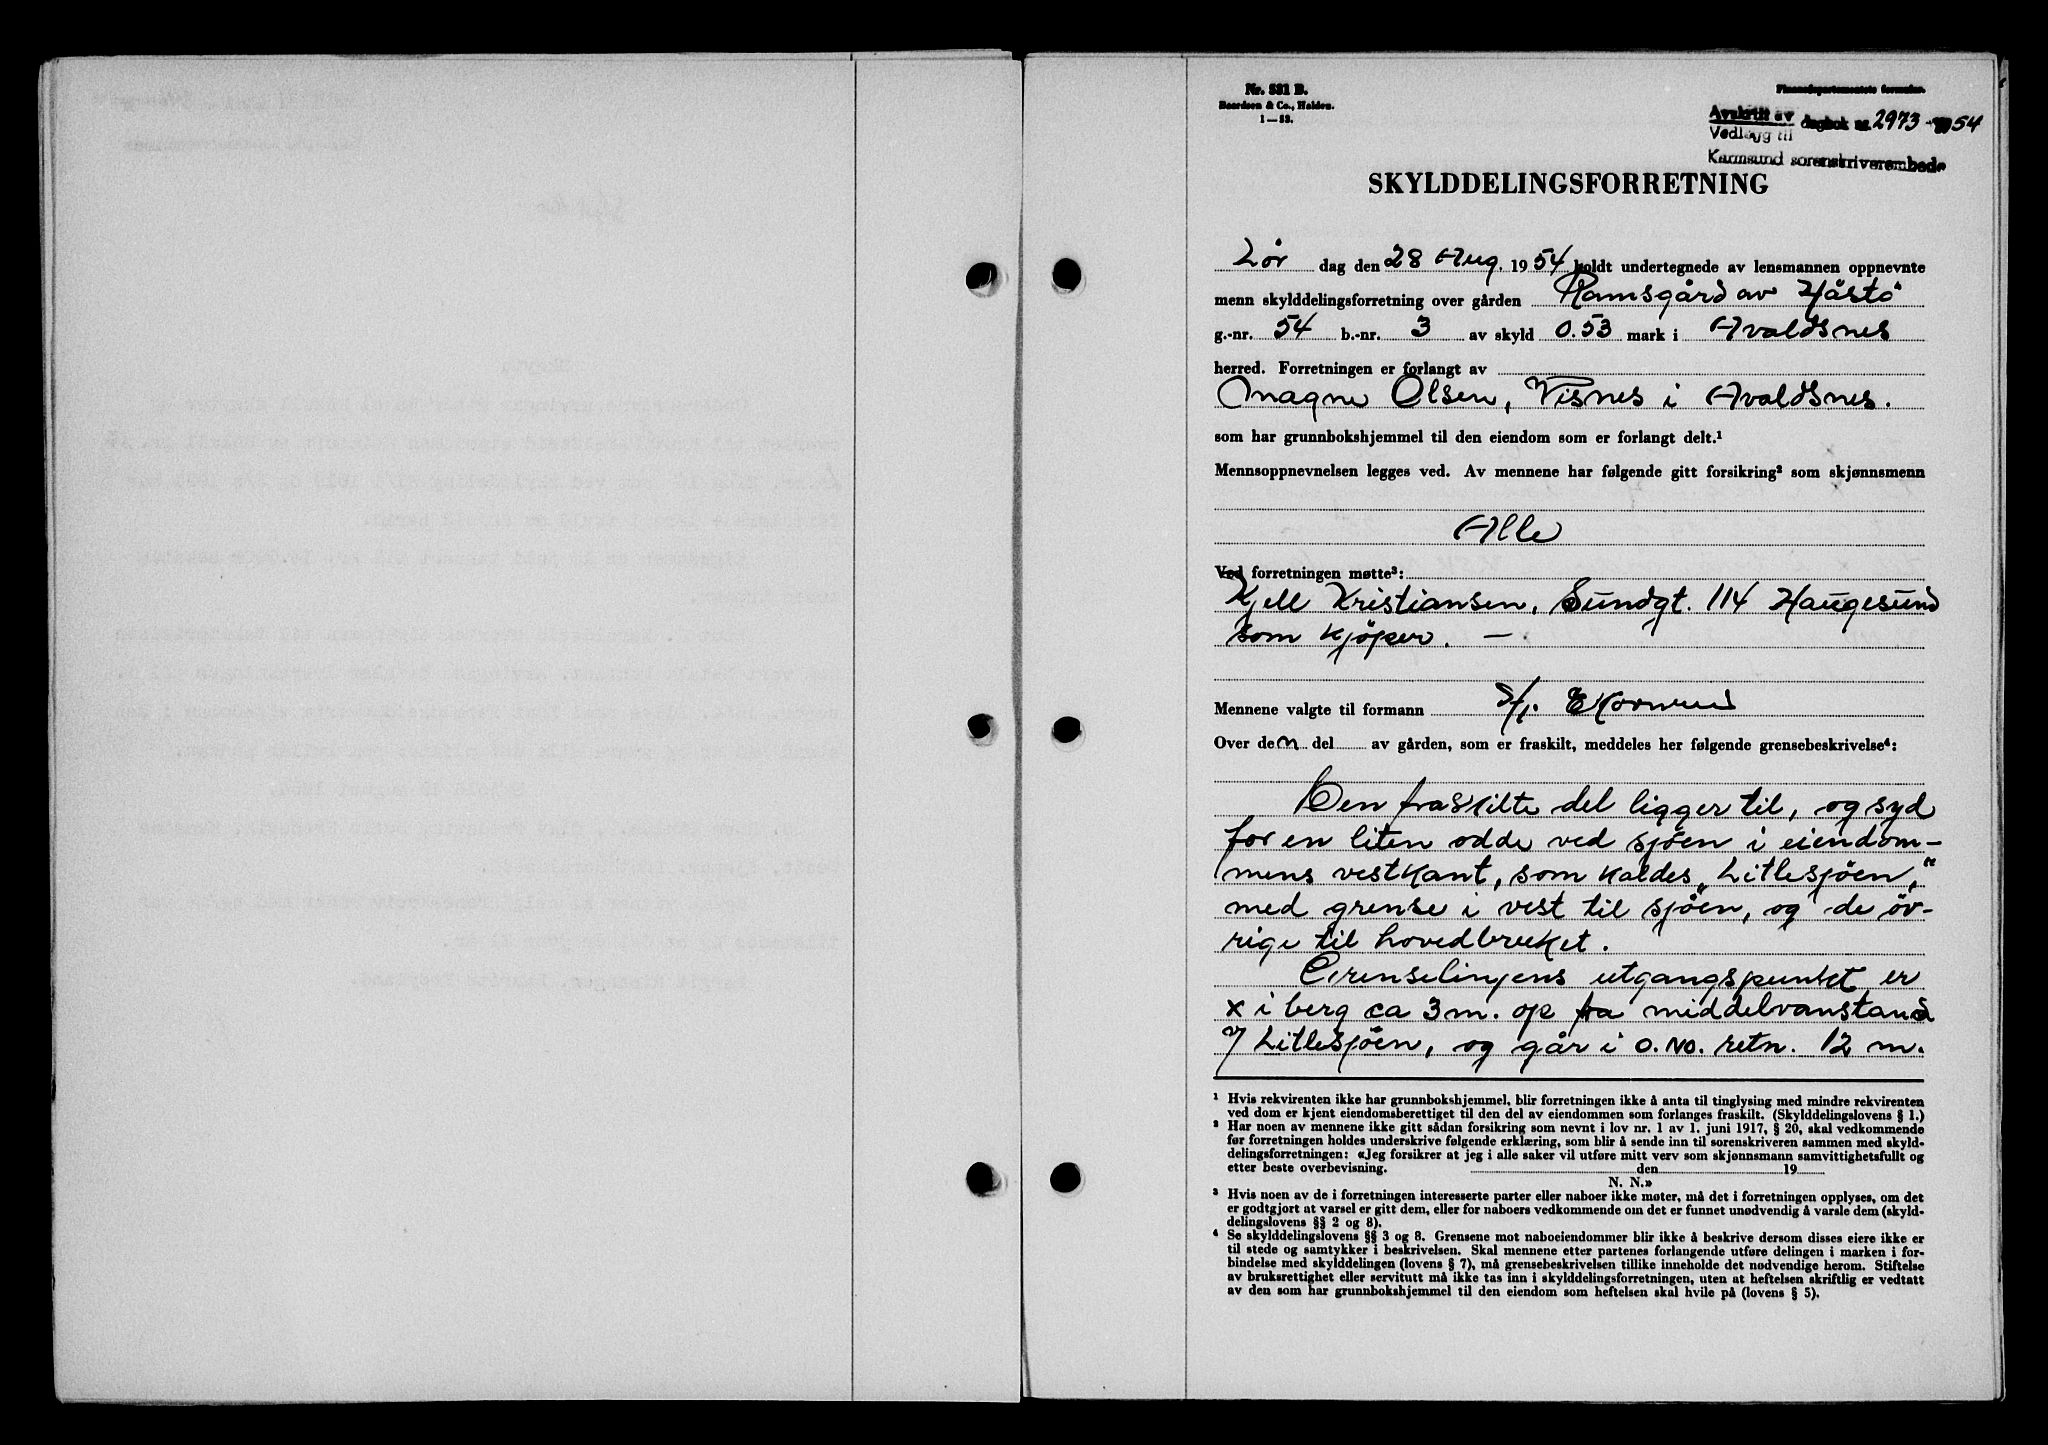 Nr. 531 B.
Finansdepartementets formular.
Avskrift av
dagbok nr. 2973 - 1954
Vedlegg til
Karmsund sorenskriverembede
SKYLDDELINGSFORRETNING
Lör dag den 28 Aug. 1954 holdt undertegnede av lensmannen oppnevnte
menn skylddelingsforretning over gården Ramsgård av Håstö
g.-nr. 54 b.-nr. 3 av skyld 0.53 mark i Avaldsnes
herred. Forretningen er forlangt av
Magne Olsen, Visnes i Avaldsnes.
som har grunnbokshjemmel til den eiendom som er forlangt delt.¹
Mennsoppnevnelsen legges ved. Av mennene har følgende gitt forsikring² som skjønnsmenn
Alle
Ved forretningen møtte³:
Kjell Kristiansen, Sundgt. 114 Haugesund
som kjöper. —
Mennene valgte til formann
Over den del av gården, som er fraskilt, meddeles her følgende grensebeskrivelse⁴:
Den fraskilte del ligger til, og syd
for en liten odde ved sjöen i eiendom-
mens vestkant, som kaldes „Litlesjöen,"
med grense i vest til sjöen, og de öv-
rige til hovedbruket.
Grenselinjens utgangspunkt er
x i berg ca 3 m. op fra middelvanstand
i Litlesjöen, og går i o. no. retn. 12 m.
¹ Hvis rekvirenten ikke har grunnbokshjemmel, blir forretningen ikke å anta til tinglysing med mindre rekvirenten
ved dom er kjent eiendomsberettiget til den del av eiendommen som forlanges fraskilt. (Skylddelingslovens § 1.)
² Har noen av mennene ikke gitt sådan forsikring som nevnt i lov nr. 1 av 1. juni 1917, § 20, skal vedkommende
før forretningen holdes underskrive følgende erklæring, som blir å sende inn til sorenskriveren sammen med skyld-
delingsforretningen: «Jeg forsikrer at jeg i alle saker vil utføre mitt verv som skjønnsmann samvittighetsfullt og
etter beste overbevisning. den 19
N. N.»
³ Hvis noen av de i forretningen interesserte parter eller naboer ikke møter, må det i forretningen opplyses, om det
er godtgjort at varsel er gitt dem, eller for naboers vedkommende om det er funnet unødvendig å varsle dem (skyld-
delingslovens §§ 2 og 8).
⁴ Se skylddelingslovens §§ 3 og 8. Grensene mot naboeiendommer blir ikke å beskrive dersom disses eiere ikke er
til stede og samtykker i beskrivelsen. Skal mennene etter partenes forlangende utføre delingen i marken i for-
bindelse med skylddelingen (lovens § 7), må grensebeskrivelsen tillike inneholde det nødvendige herom. Stiftelse
av bruksrettighet eller servitutt må ikke tas inn i skylddelingsforretningen, uten at heftelsen skriftlig er vedtatt
av den som har grunnbokshjemmel til den eiendom som heftelsen skal hvile på (lovens § 5).